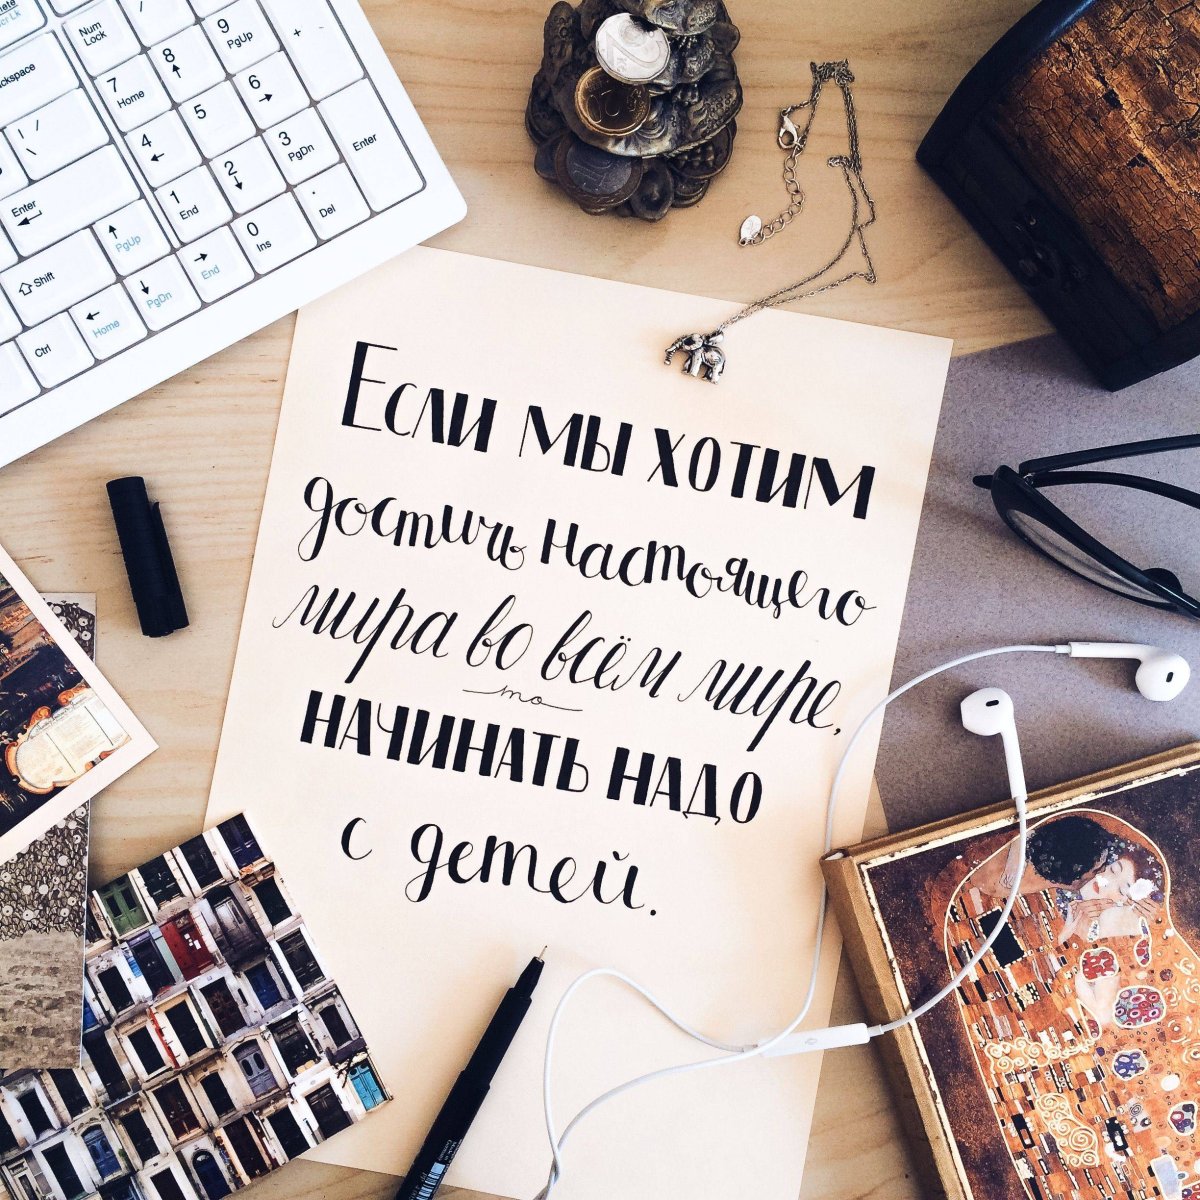 Если мы хотим
достичь настоящего
мира во всём мире,
то
начинать надо
с детей.
Num Lock
9 PgUp
+
8
7 Home
6
5
4
3 PgDn
Enter
2
1 End
. Del
0 Ins
Enter
PgUp
End
Shift
PgDn
Home
Ctrl